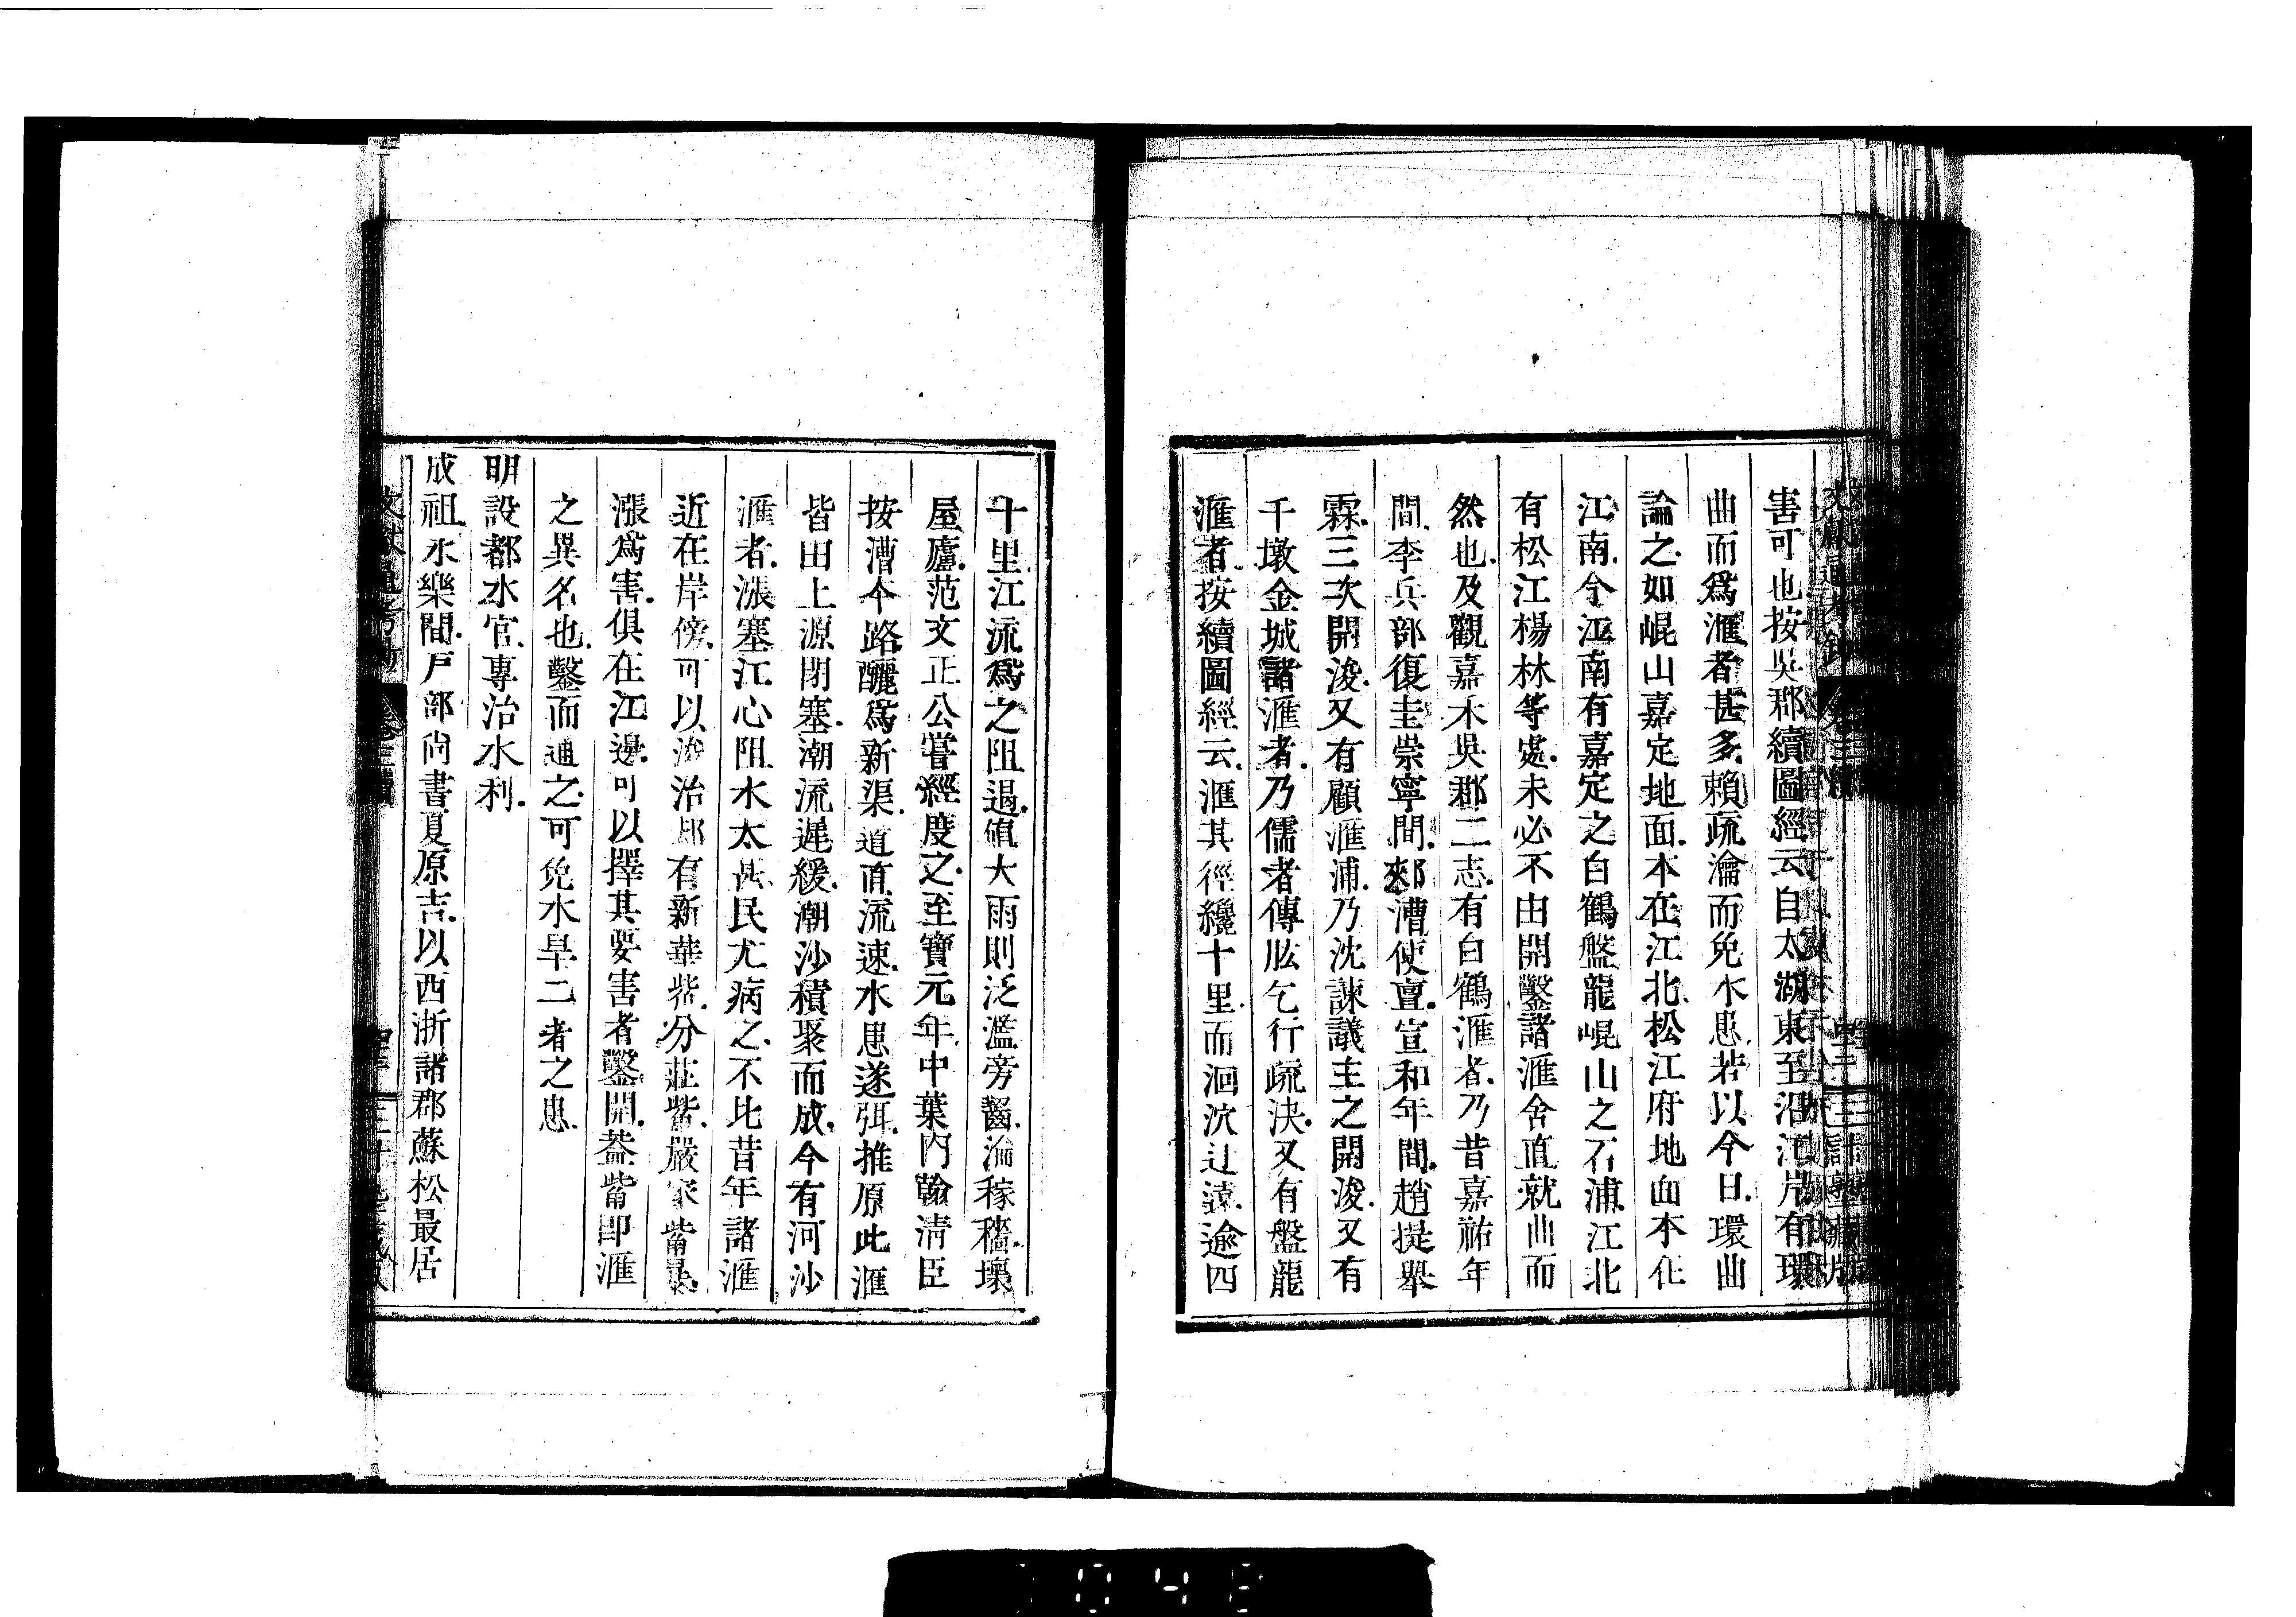 害可也按吳郡續圖經云自太湖東至沿江岸有環
曲而爲滙者甚多賴疏瀹而免水患若以今日環曲
論之如崐山嘉定地面本在江北松江府地面本在
江南今江南有嘉定之白鶴盤龍崐山之石浦江北
有松江楊林等處未必不由開鑿諸滙舍直就曲而
然也及觀嘉禾吳郡二志有白鶴滙者乃昔嘉祐年
間李兵部復圭崇寧間郟漕使亶宣和年間趙提舉
霖三次開浚又有顧滙浦乃沈諫議主之開浚又有
千墩金城諸滙者乃儒者傳肱乞行疏決又有盤龍
滙者按續圖經云滙其徑纔十里而洄沇迂遠逾四
十里江流爲之阻遏値大雨則泛濫旁齧淪稼穡壞
屋廬范文正公嘗經度之至寶元年中葉內翰淸臣
按漕本路釃爲新渠道直流速水患遂弭推原此滙
皆由上源閉塞潮流遲緩潮沙積聚而成今有河沙
滙者漲塞江心阻水太甚民尤病之不比昔年諸滙
近在岸傍可以浚治郄有新華觜分莊觜嚴家觜
漲爲害俱在江邊可以擇其要害者鑿開葢觜即滙
之異名也鑿而通之可免水旱二者之患
明設都水官專治水利
成祖永樂間戶部尙書夏原吉以西浙諸郡蘇松最居